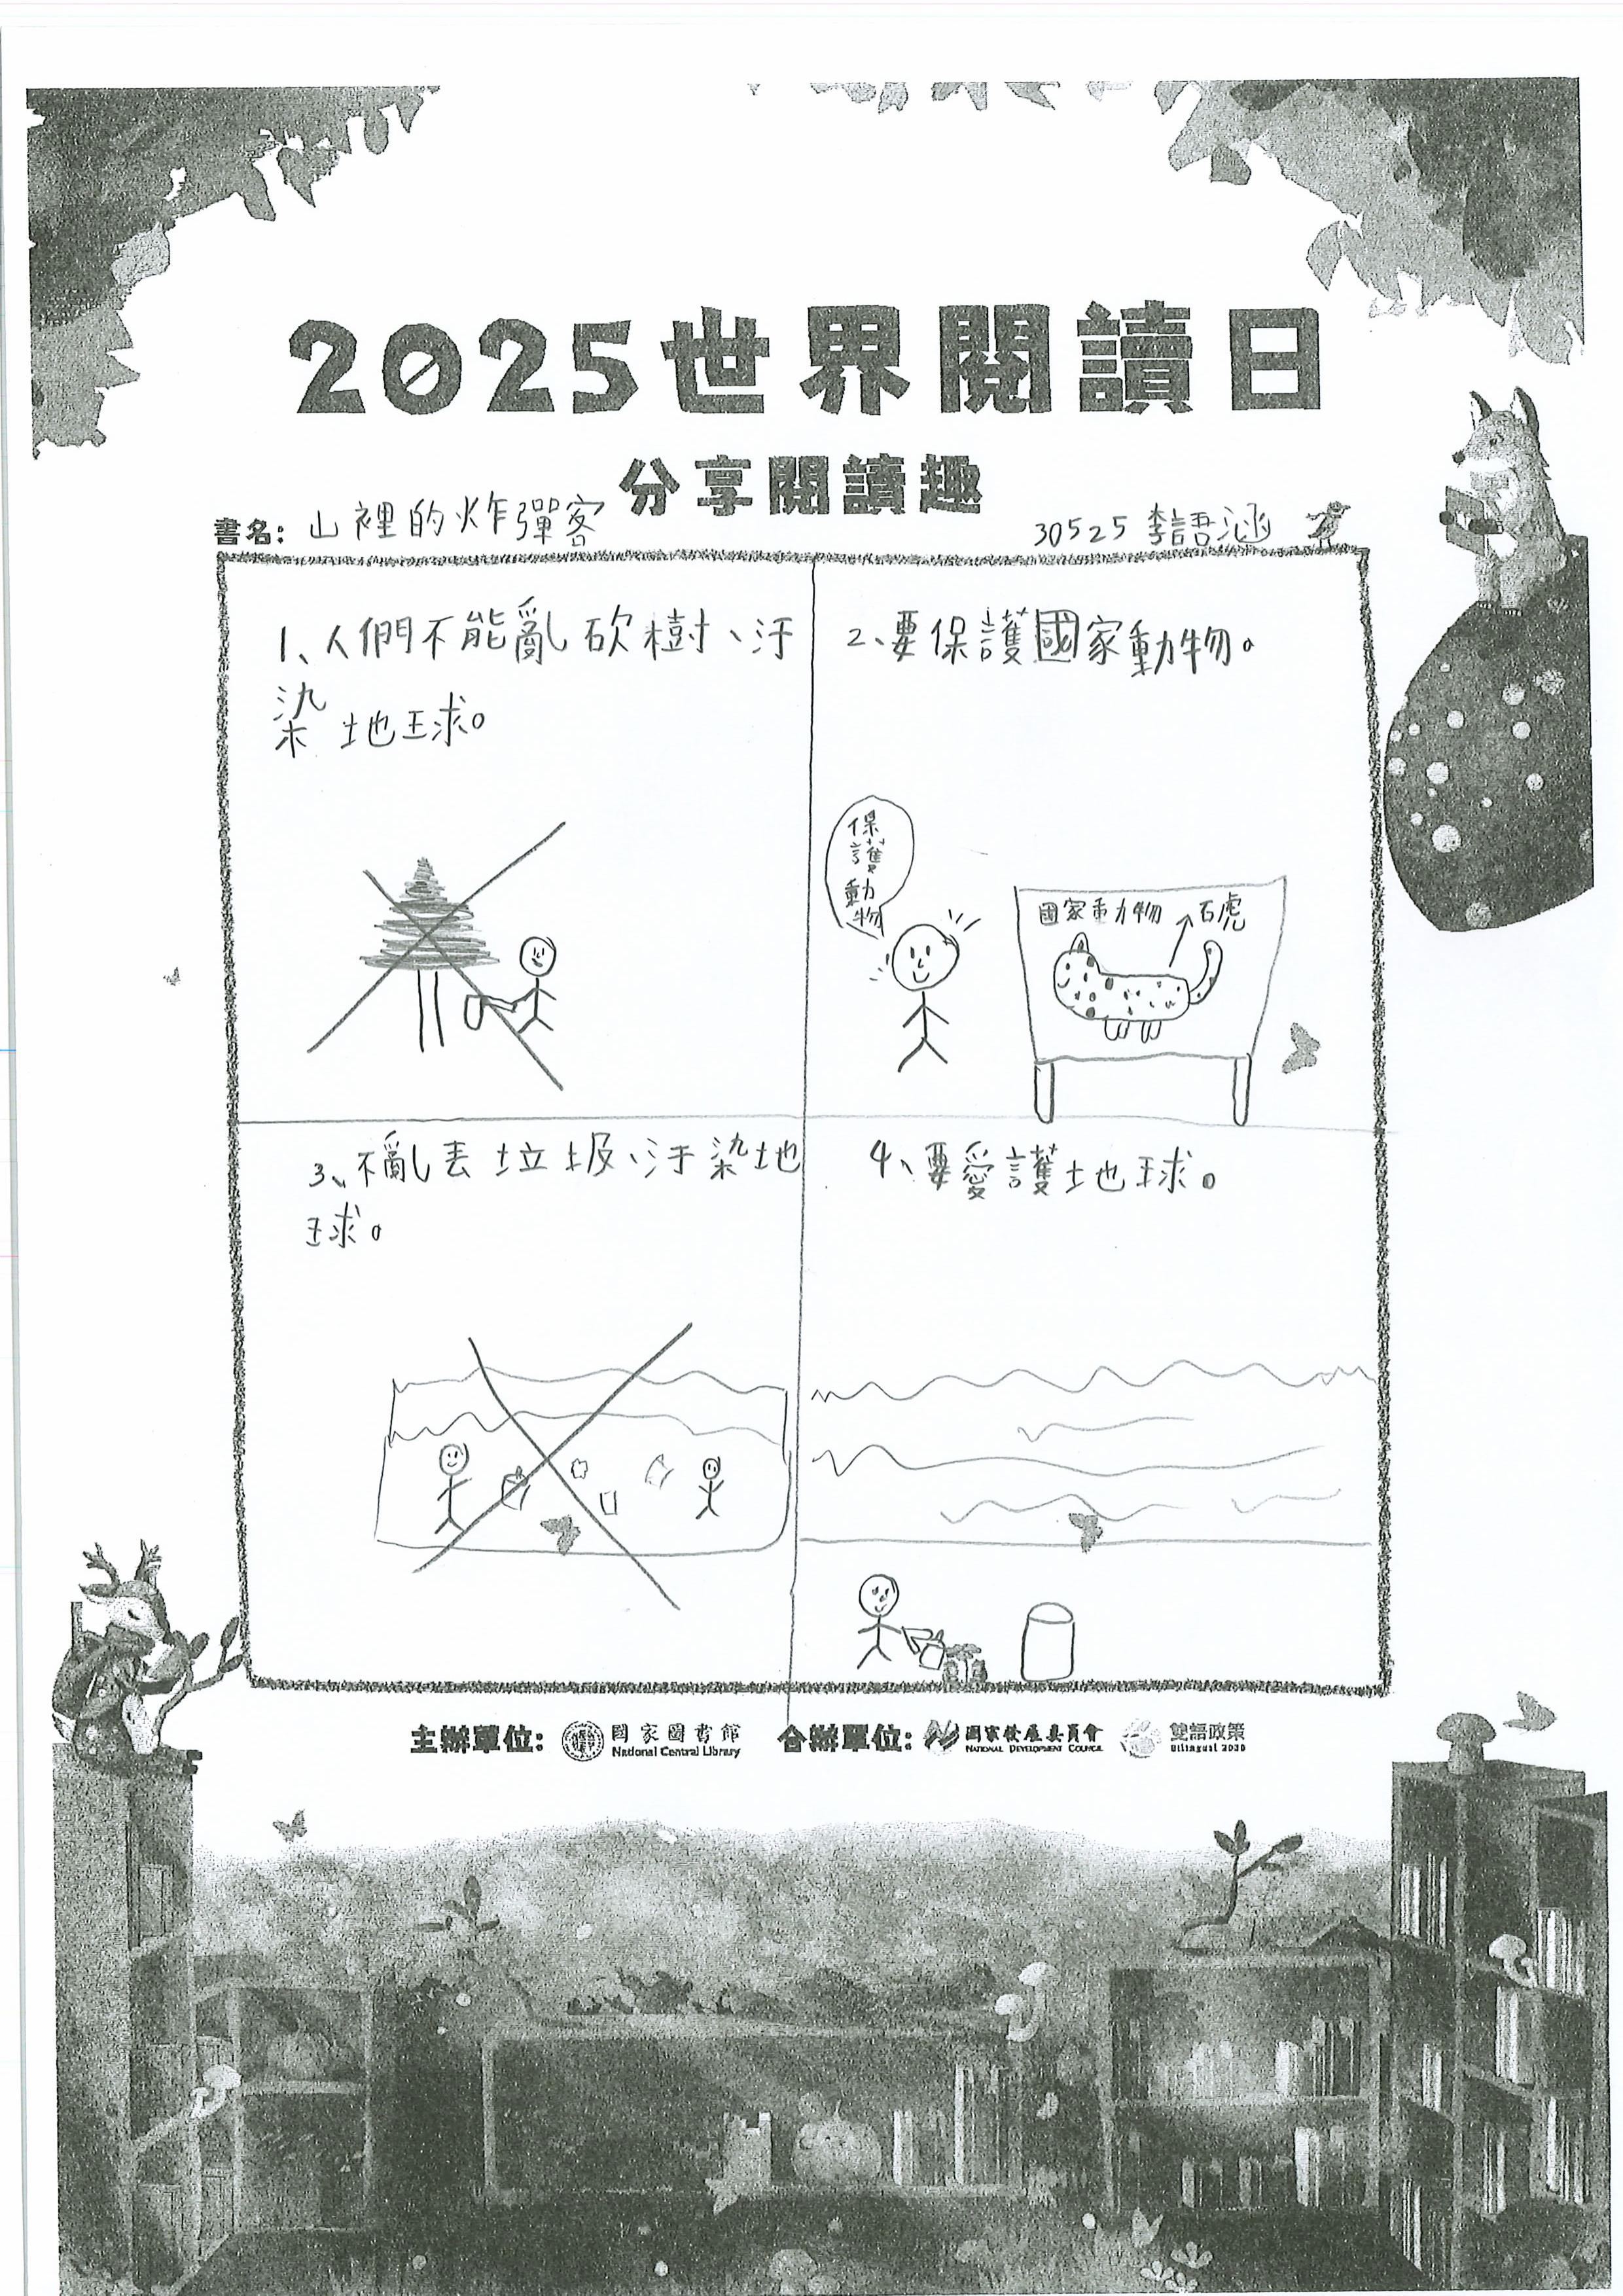 2025世界閱讀日
分享閱讀趣
書名：山裡的炸彈客
30525 李語涵
1、人們不能亂砍樹、汙
染地球。
2、要保護國家動物。
保護動物
國家動物→石虎
3、不亂丟垃圾、汙染地
球。
4、要愛護地球。
主辦單位：國家圖書館 National Central Library 合辦單位：國家發展委員會 NATIONAL DEVELOPMENT COUNCIL 雙語政策 Bilingual 2030